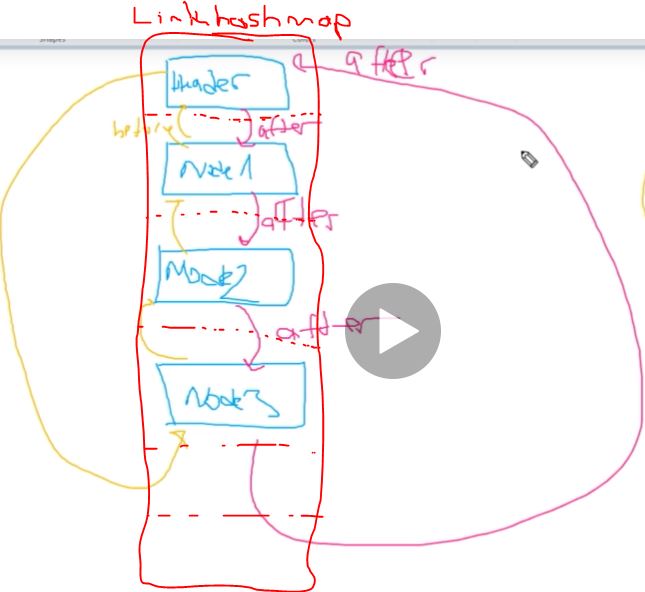 Linkhashmap
after
Header
before
after
Node1
after
Node2
after
Node3